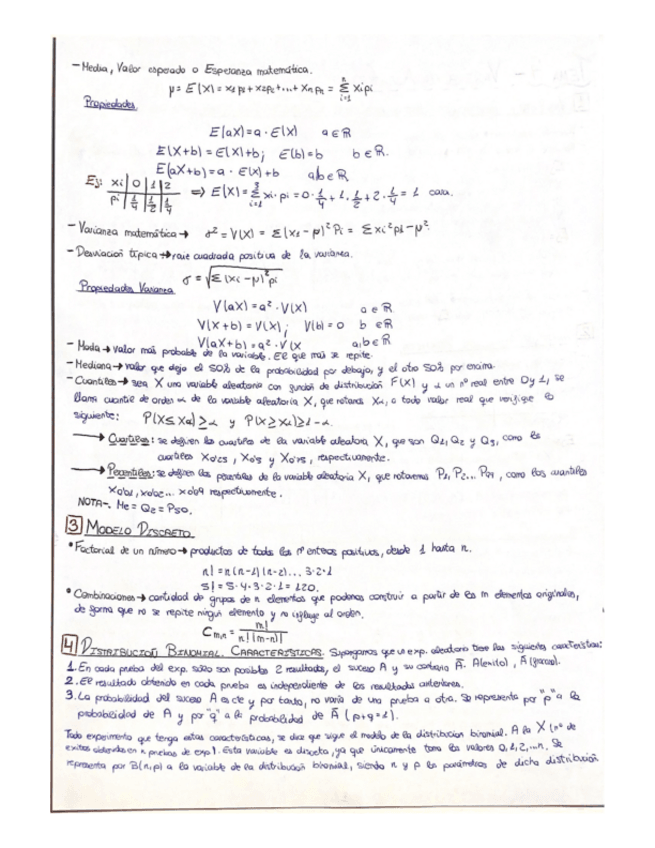 - Media, Valor esperado o Esperanza matemática.
μ = E(X) = x₁p₁ + x₂p₂ + ... + xₙpₙ = Σⁿᵢ₌₁ xᵢpᵢ
Propiedades
E(aX) = a · E(X)  a ∈ ℝ
E(X+b) = E(X)+b ; E(b) = b  b ∈ ℝ.
E(aX+b) = a · E(X)+b  a,b ∈ ℝ
Ej: xi | 0 | 1 | 2
pi | 1/4 | 1/2 | 1/4 ⇒ E(X) = Σ³ᵢ₌₁ xi · pi = 0 · 1/4 + 1 · 1/2 + 2 · 1/4 = 1 cara.
- Varianza matemática → σ² = V(X) = Σ(xi - μ)² Pi = Σ xi² pi - μ².
- Desviación típica → raíz cuadrada positiva de la varianza.
σ = √Σ(xi - μ)² pi
Propiedades Varianza
V(aX) = a² · V(X)  a ∈ ℝ
V(X+b) = V(X) ; V(b) = 0  b ∈ ℝ
V(aX+b) = a² · V(X  a,b ∈ ℝ
- Moda → valor más probable de la variable. El que más se repite.
- Mediana → valor que deja el 50% de la probabilidad por debajo, y el otro 50% por encima.
- Cuantiles → sea X una variable aleatoria con función de distribución F(X) y α un nº real entre 0 y 1, se
llama cuantil de orden α de la variable aleatoria X, que notamos Xα, a todo valor real que verifique lo
siguiente: P(X ≤ Xα) ≥ α y P(X ≥ Xα) ≥ 1 - α.
→ Cuartiles: se definen los cuartiles de la variable aleatoria X, que son Q1, Q2 y Q3, como los
cuartiles X0'25, X0'5 y X0'75, respectivamente.
→ Percentiles: se definen los percentiles de la variable aleatoria X, que notaremos P1, P2... P99, como los cuantiles
X0'01, X0'02... X0'09 respectivamente.
NOTA-. Me = Q2 = P50.
3 MODELO DISCRETO
• Factorial de un número → productos de todos los nº enteros positivos, desde 1 hasta n.
n! = n(n-1)(n-2)... 3·2·1
5! = 5·4·3·2·1 = 120.
• Combinaciones → cantidad de grupos de n elementos que podemos construir a partir de los m elementos originales,
de forma que no se repite ningún elemento y no influye al orden.
Cm,n = m! / n!(m-n)!
4 DISTRIBUCIÓN BINOMIAL. CARACTERÍSTICAS. Supongamos que un exp. aleatorio tiene las siguientes características:
1. En cada prueba del exp. sólo son posibles 2 resultados, el suceso A y su contrario Ā. A(exito), Ā (fracaso).
2. El resultado obtenido en cada prueba es independiente de los resultados anteriores.
3. La probabilidad del suceso A es cte y por tanto, no varía de una prueba a otra. Se representa por "p" a la
probabilidad de A y por "q" a la probabilidad de Ā (p+q=1).
Todo experimento que tenga estas características, se dice que sigue el modelo de la distribución binomial. A la X (nº de
exitos obtenidos en n pruebas de exp). Esta variable es discreta, ya que únicamente toma los valores 0,1,2,...n. Se
representa por B(n,p) a la variable de la distribución binomial, siendo n y p los parámetros de dicha distribución